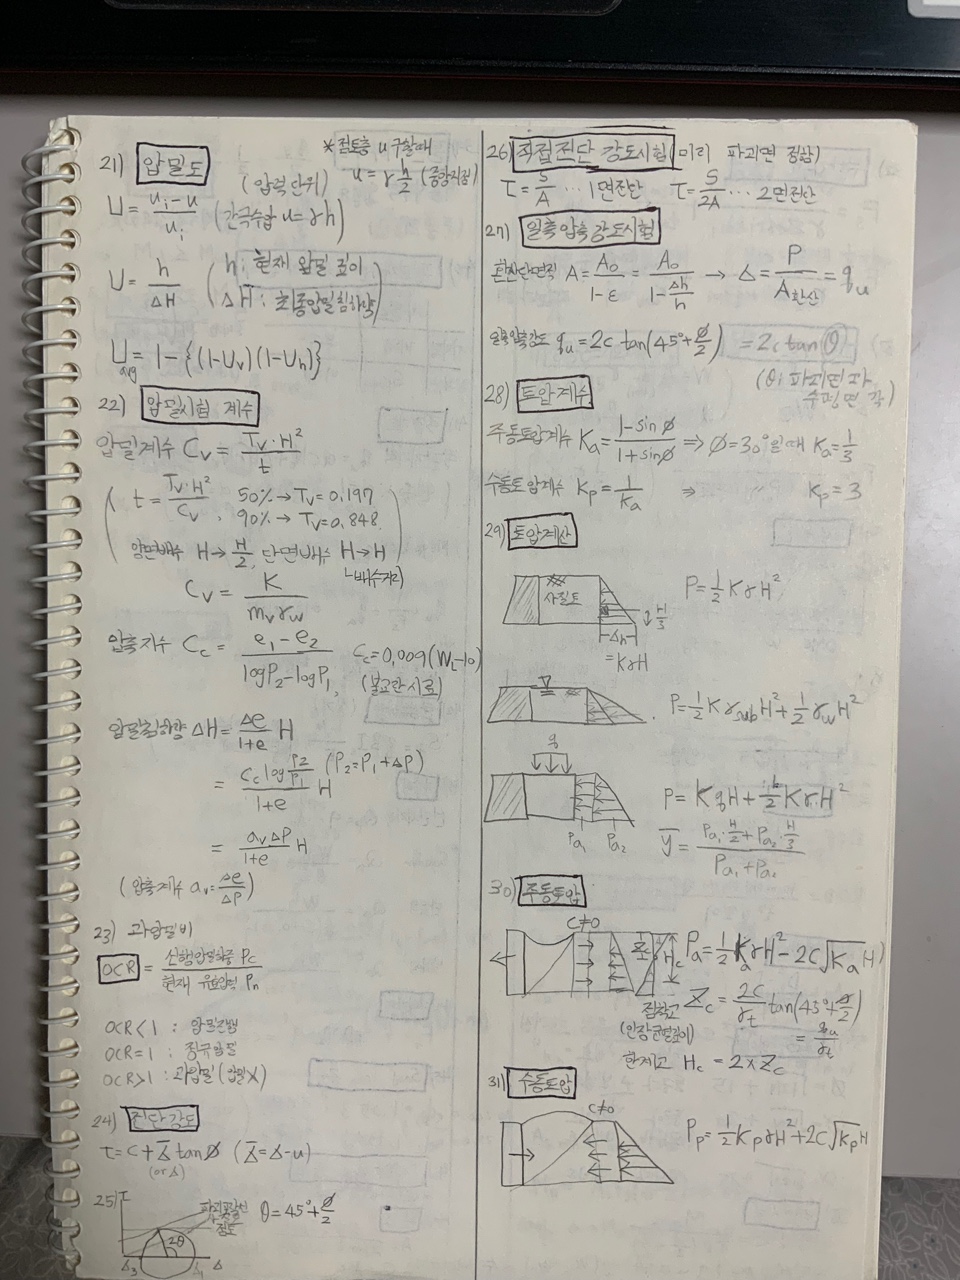 21) 압밀도
※점토층 u 구할때
u = γ h/2 (중앙지점)
(압력단위)
U = (ui - u)/ui (간극수압 u = γh)
U = h/ΔH (h: 현재 압밀 깊이
ΔH: 최종압밀침하량)
Uavg = 1 - {(1-Uv)(1-Uh)}
22) 압밀시험 계수
압밀계수 Cv = Tv·H²/t
(t = Tv·H²/Cv, 50% → Tv = 0.197
90% → Tv = 0.848
양면배수 H → H/2, 단면배수 H → H)
Cv = K/(mvγw)
압축지수 Cc = (e1 - e2)/(logP2 - logP1), Cc = 0.009(WL-10)
(불교란시료)
압밀침하량 ΔH = Δe/(1+e) H
= Cc log(P2/P1)/(1+e) H (P2 = P1 + ΔP)
= avΔP/(1+e) H
(압축계수 av = Δe/ΔP)
23) 과압밀비
OCR = 선행압밀하중 Pc/현재 유효압력 Pn
OCR < 1 :
OCR = 1 : 정규압밀
OCR > 1 : 과압밀 (압밀X)
24) 전단강도
τ = c + σ̄ tanø (σ̄ = σ - u)
(or σ)
25) τ
파괴포락선
점토
θ = 45° + ø/2
2θ
σ3 σ1 σ
26) 직접전단 강도시험 (미리 파괴면 정함)
τ = S/A … 1면전단 τ = S/2A … 2면전단
27) 일축압축강도시험
환산단면적 A = A0/(1-ε) = A0/(1-Δh/h) → σ = P/A환산 = qu
일축압축강도 qu = 2c tan(45°+ø/2) = 2c tan θ
(θ: 파괴면과
수평면 각)
28) 토압계수
주동토압계수 Ka = (1-sinø)/(1+sinø) ⇒ ø = 30°일때 Ka = 1/3
수동토압계수 Kp = 1/Ka ⇒ 〃 Kp = 3
29) 토압계산
사질토
H/3
σh
= KγH
P = 1/2 KγH²
P = 1/2 KγsubH² + 1/2 γwH²
q
Pa1 Pa2
P = KqH + 1/2 KγH²
ȳ = (Pa1·H/2 + Pa2·H/3)/(Pa1 + Pa2)
30) 주동토압
c≠0
Zc Hc
Pa = 1/2 KaγH² - 2c√Ka H
점착고
(인장균열깊이)
Zc = 2c/γt tan(45°+ø/2)
= qu/γt
한계고 Hc = 2×Zc
31) 수동토압
c≠0
Pp = 1/2 KpγH² + 2c√Kp H